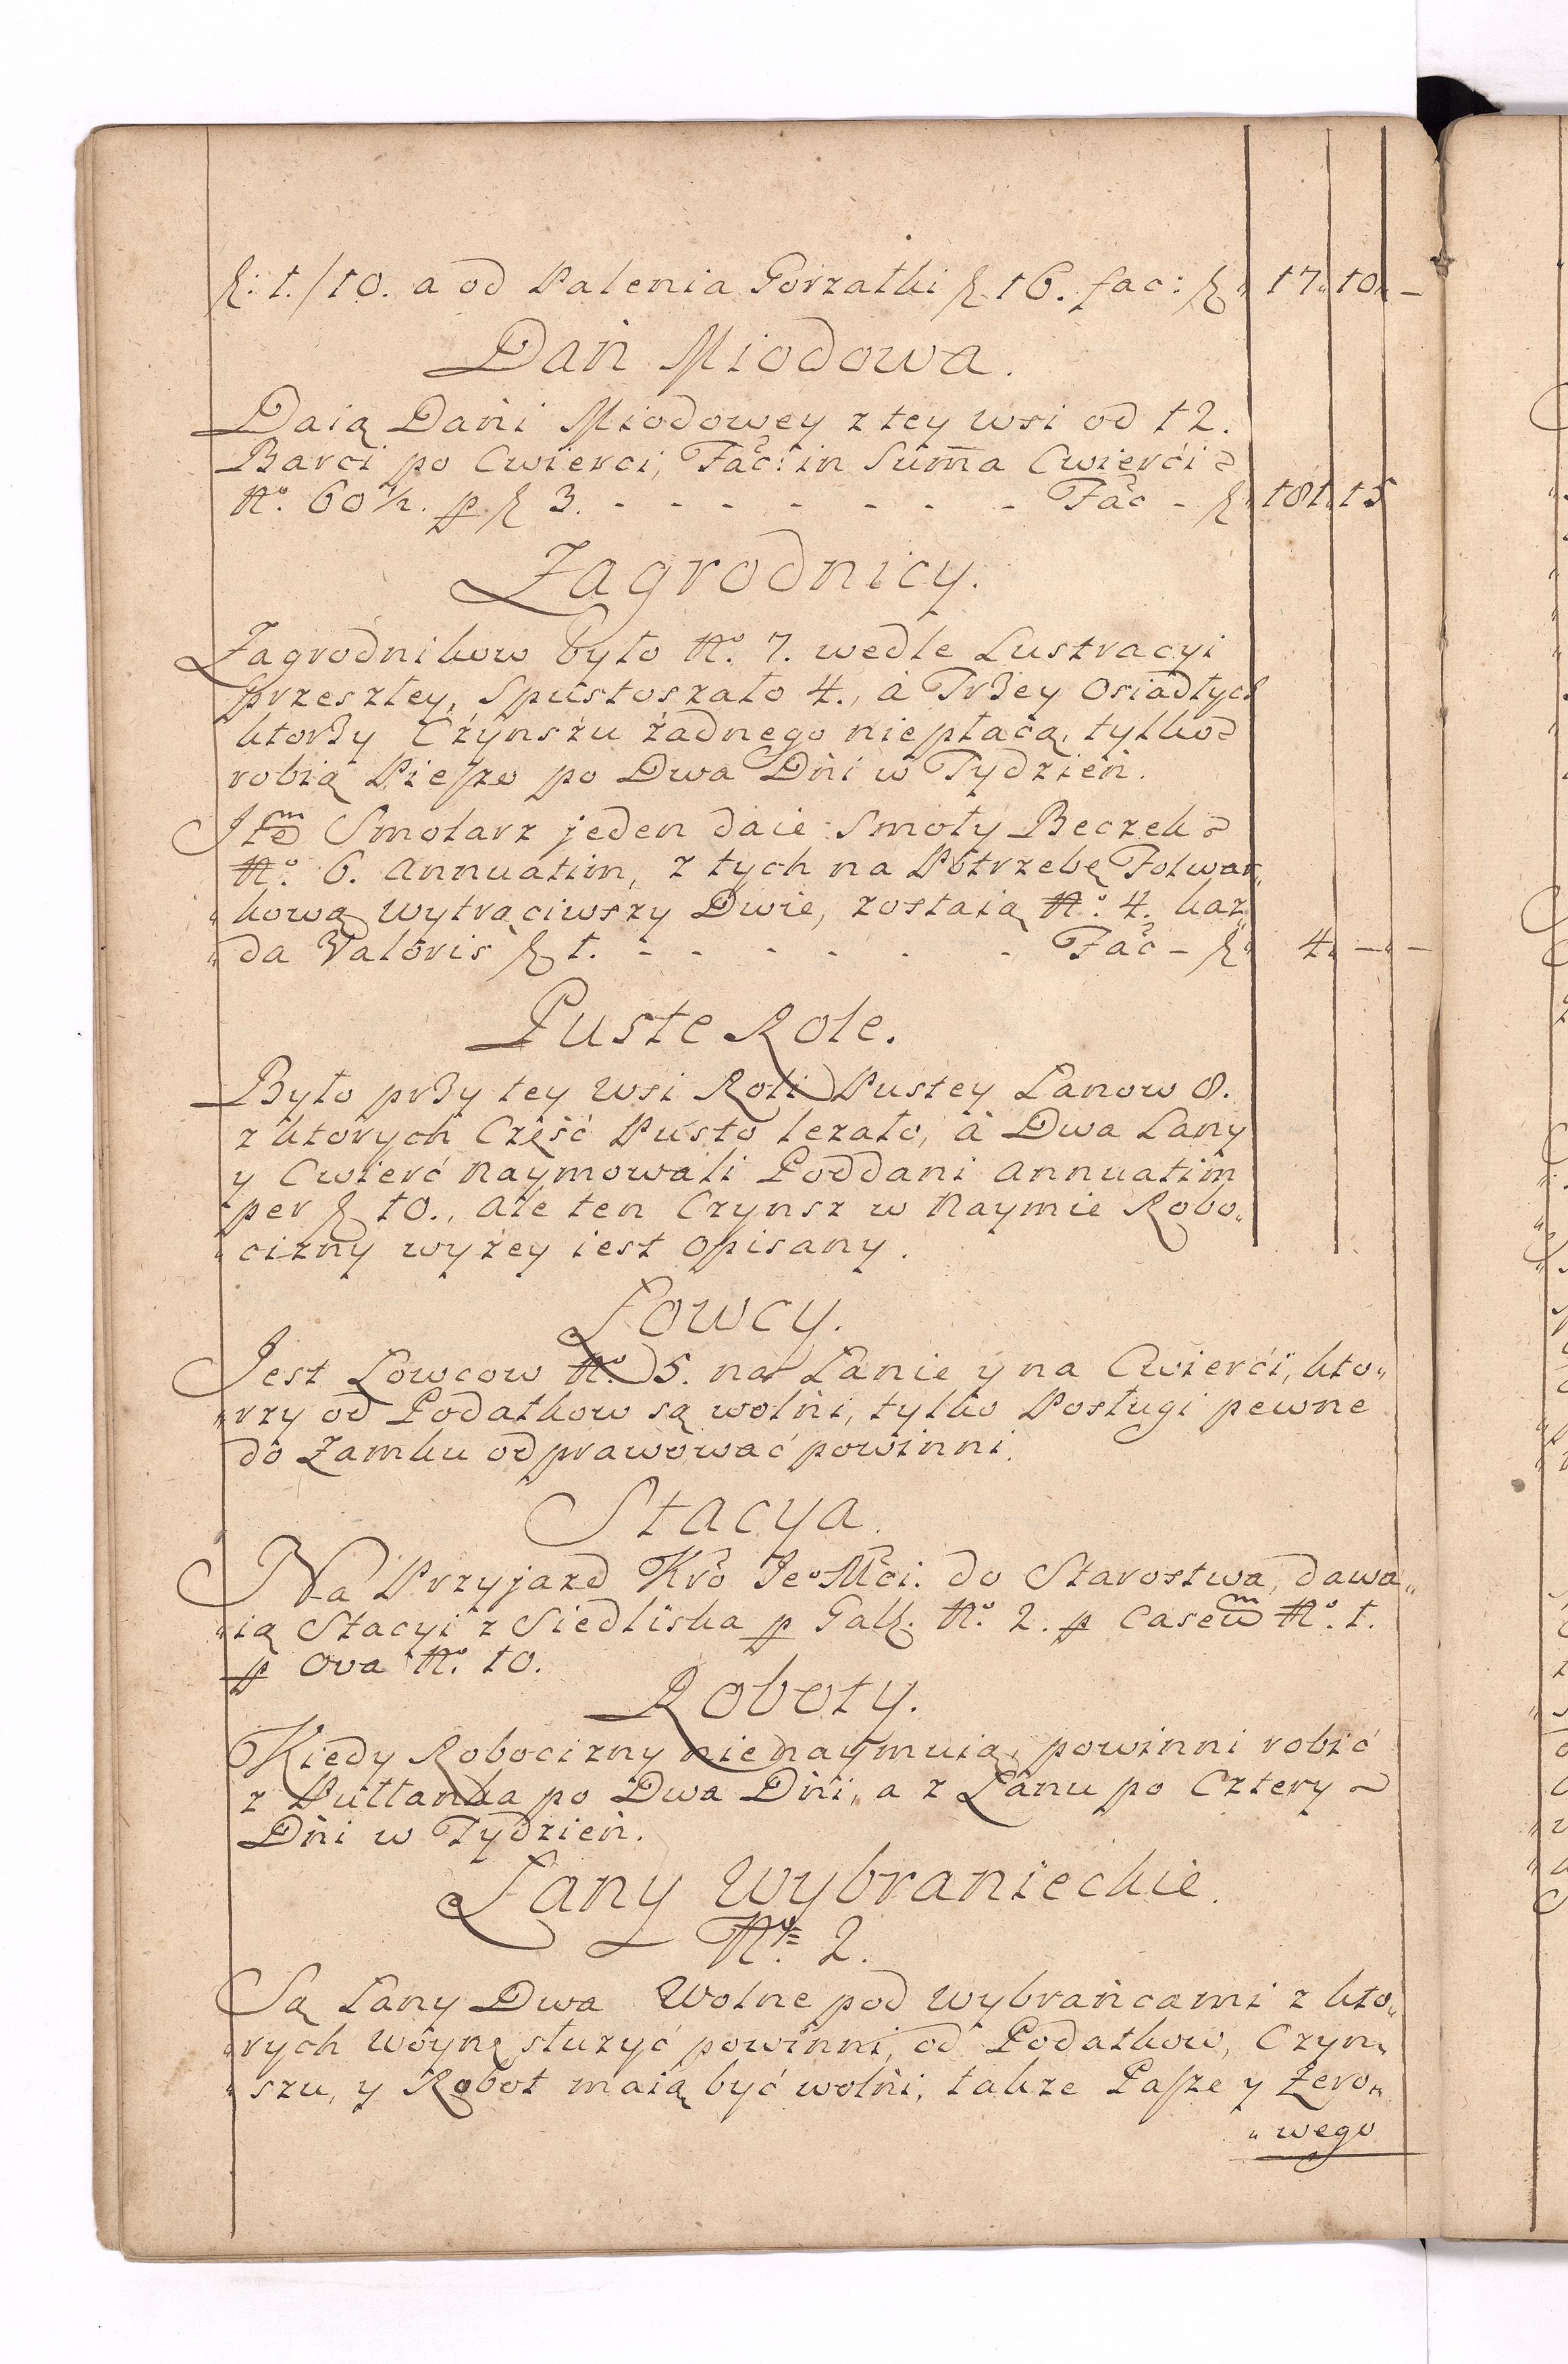 zł: 1./10. a od Palenia Gorzałki zł 16. fac: zł„ 17„ 10„ –
Dań Miodowa.
Daią Dańi Miodowey z tey wsi od 12.
Barci po Cwierci, Fać: in Sum̄a Cwierći
No. 60 1/2. p zł 3. - - - - - - - Fać - zł„ 181„ 15
Zagrodnicy.
Zagrodnikow było No. 7. wedle Lustracyi
przeszłey, Spustoszało 4., à Trzey Osiadłych
ktorzy Czynszu żadnego niepłacą, tylko
robią Pieszo po Dwa Dńi w Tydzień.
Item Smolarz jeden daie Smoły Beczek
No. 6. Annuatim, z tych na Potrzebę Folwar„
„kową wytrąciwszy Dwie, zostaią No. 4. każ„
„da Valoris zł 1. - - - - - - Fać – zł„ 4„ –„ –
Puste Role.
Było przy tey wsi Roli Pustey Łanow 8.
z ktorych Część Pusto leżało, à Dwa Łany
y Cwierć Naymowali Poddani Annuatim
per zł 10., ale ten Czynsz w Naymie Robo„
„cizny wyżey iest opisany.
Łowcy.
Jest Łowcow No. 5. na Łanie y na Cwierći, kto„
„rzy od Podatkow są wolni, tylko Posługi pewne
do Zamku odprawować powinni.
Stacya.
Na Przyjazd Kró Jeo Mći. do Starostwa, dawa„
„ią Stacyi z Siedliska p Gall. No. 2. p Caseum No. 1.
p Ova No. 10.
Roboty.
Kiedy Robocizny nienaymuią, powinni robić
z Pułłanka po Dwa Dńi, a z Łanu po Cztery
Dńi w Tydzień.
Łany Wybranieckie.
No. 2.
Są Łany Dwa Wolne pod Wybrańcami z kto„
„rych Woynę służyć powinni, od Podatkow, Czyn„
„szu, y Robot maią być wolni, także Paszę y Żero„
„wego